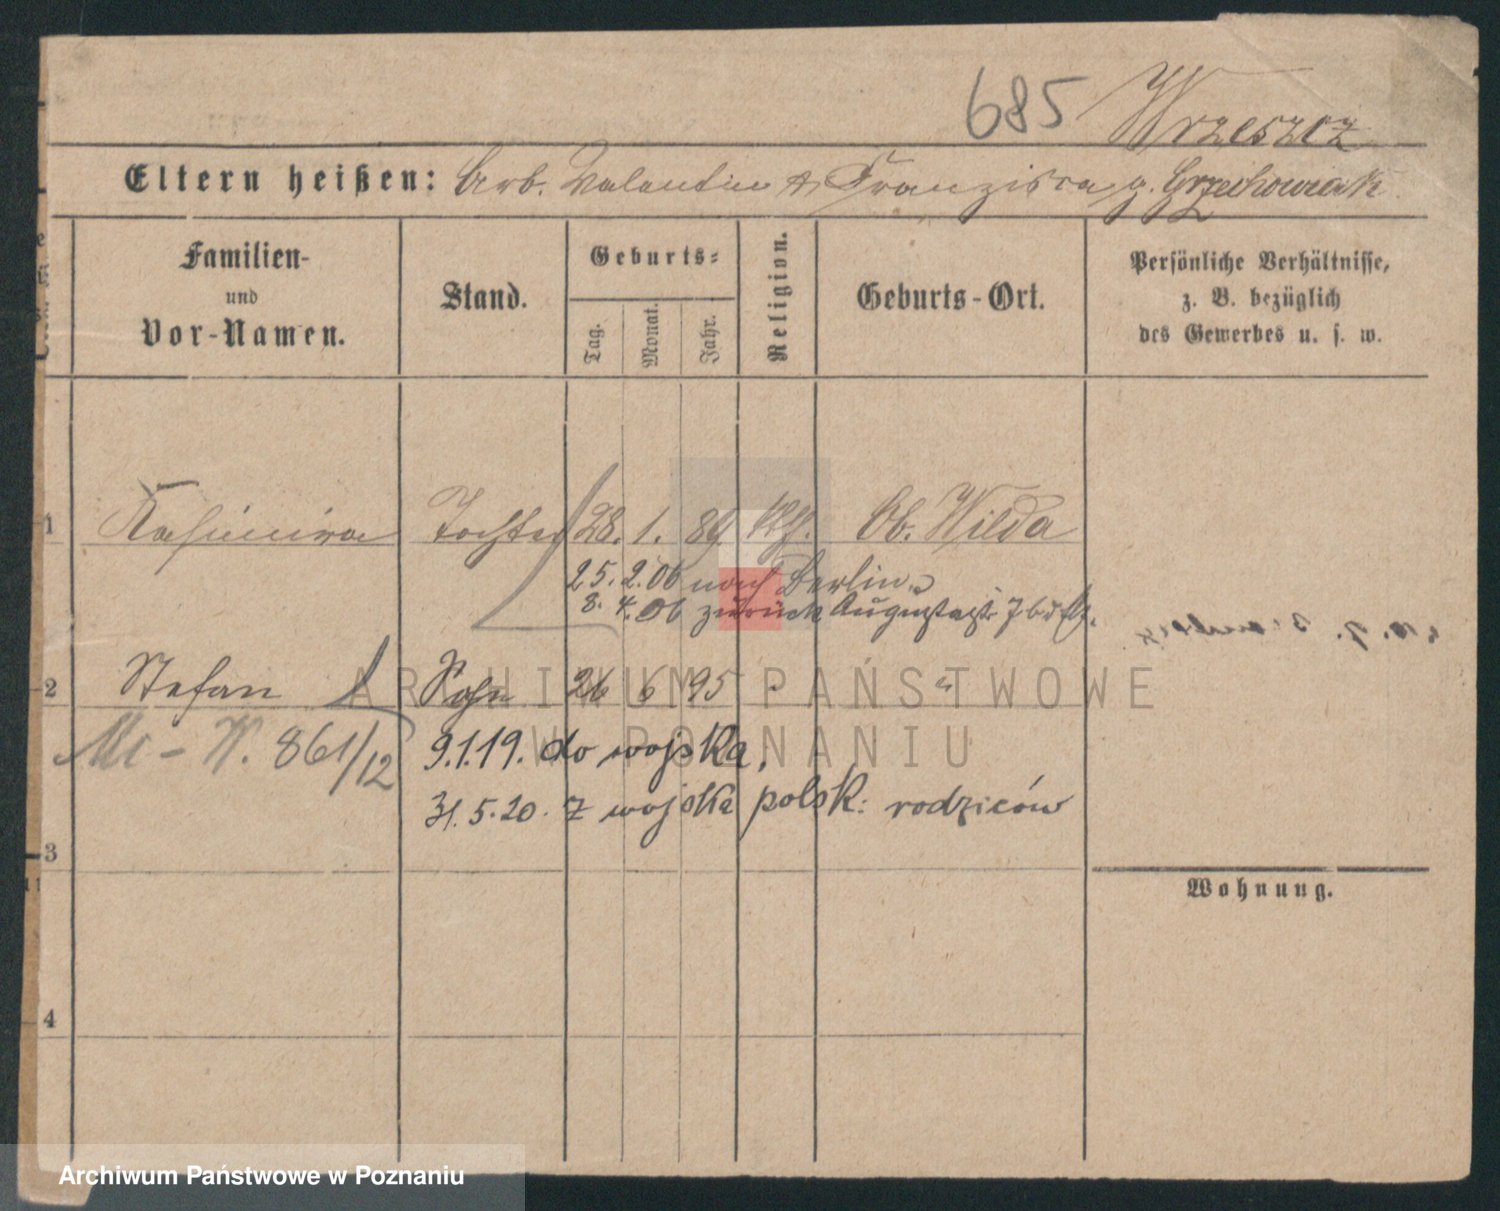 685 Wrzeszcz
Eltern heißen: Arb. Valentin & Franziska g. Grzechowiak
Familien- und Vor-Namen.
Stand.
Geburts-
Tag.
Monat.
Jahr.
Religion.
Geburts-Ort.
Persönliche Verhältnisse,
z. B. bezüglich
des Gewerbes u. s. w.
1 Kasimira Tochter 28. 1. 89 kth. Ob. Wilda
25. 2. 06 nach Berlin
8. 4. 06 zurück Auguststr. 7b
2 Stefan Sohn 26 6 95 "
W. 861/12 9.1.19. do wojska,
31.5.20. z wojska polsk: rodziców
3
Wohnung.
4
ARCHIWUM PAŃSTWOWE
W POZNANIU
Archiwum Państwowe w Poznaniu